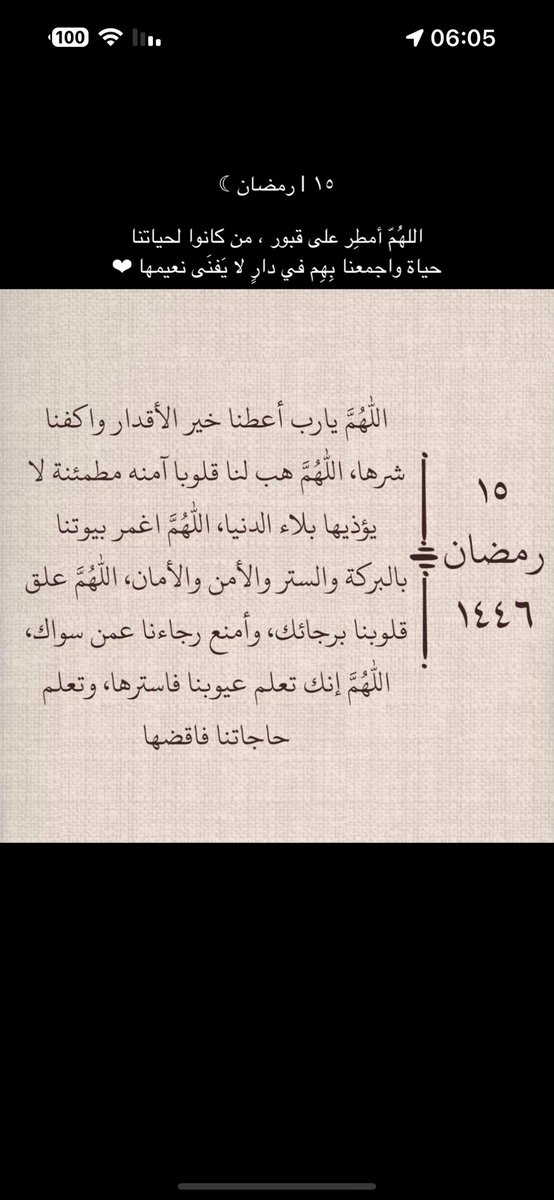 100
06:05
١٥ | رمضان ☾
اللهُمّ أمطِر على قبور ، من كانوا لحياتنا
حياة واجمعنا بِهِم في دارٍ لا يَفنَى نعيمها ❤
١٥
رمضان
١٤٤٦
اللَّهُمَّ يارب أعطنا خير الأقدار واكفنا
شرها، اللَّهُمَّ هب لنا قلوبا آمنه مطمئنة لا
يؤذيها بلاء الدنيا، اللَّهُمَّ اغمر بيوتنا
بالبركة والستر والأمن والأمان، اللَّهُمَّ علق
قلوبنا برجائك، وأمنع رجاءنا عمن سواك،
اللَّهُمَّ إنك تعلم عيوبنا فاسترها، وتعلم
حاجاتنا فاقضها